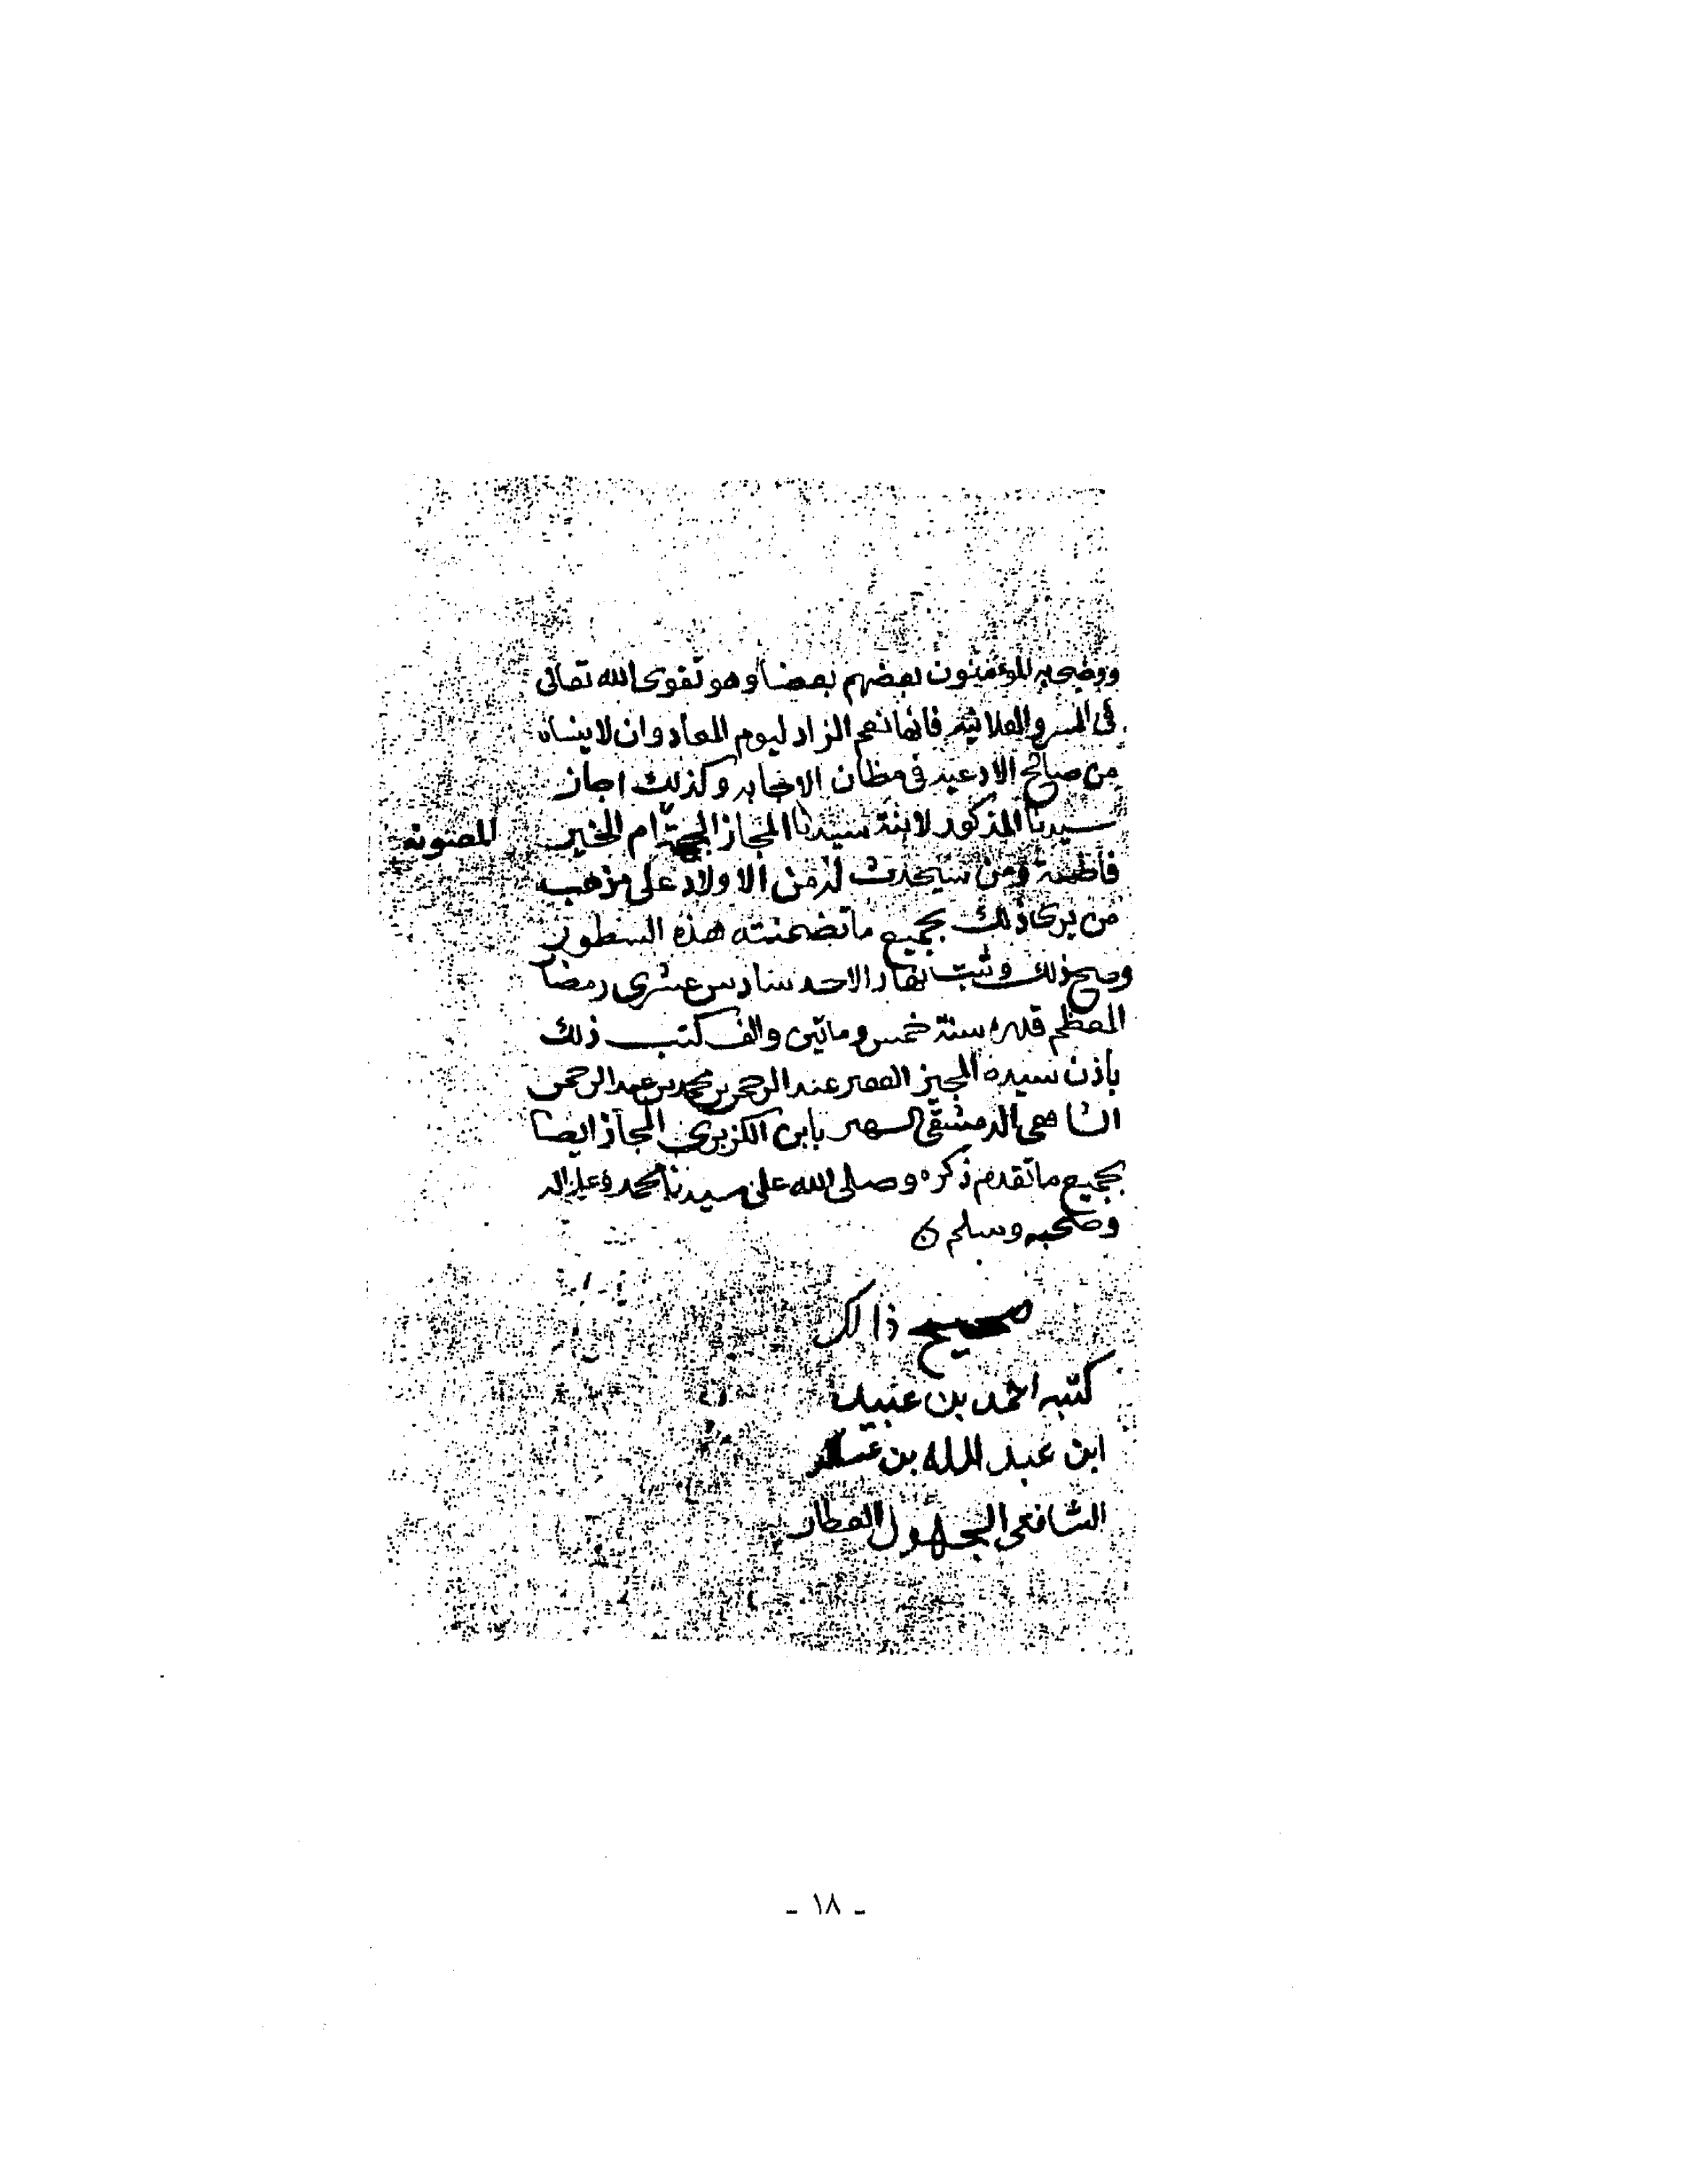 ووصى به المؤمنون بعضهم بعضا وهو تقوى الله تعالى
فى السر والعلانية فانها نعم الزاد ليوم المعاد وان لا ينساه
من صالح الادعية فى مظان الاجابه وكذلك اجاز
سيدنا المذكور لابنة سيدنا المجاز ام الخير المصونه
فاطمة ومن سيحدث له من الاولاد على مذهب
من يرى ذلك بجميع ما تضمنته هذه السطور
وصح ذلك وثبت نهار الاحد سادس عشرى رمضا
المعظم قدره سنة خمس وماتين والف كتب ذلك
باذن سيده المجيز الفقير عبد الرحمن بن محمد بن عبد الرحمن
الشافعى الدمشقى الشهير بابن الكزبرى المجاز ايضا
بجميع ما تقدم ذكره وصلى الله على سيدنا محمد وعلى اله
وصحبه وسلم
صحيح ذالك
كتبه احمد بن عبيد
ابن عبد الله بن عسكر
الشافعى العطار
- ١٨ -